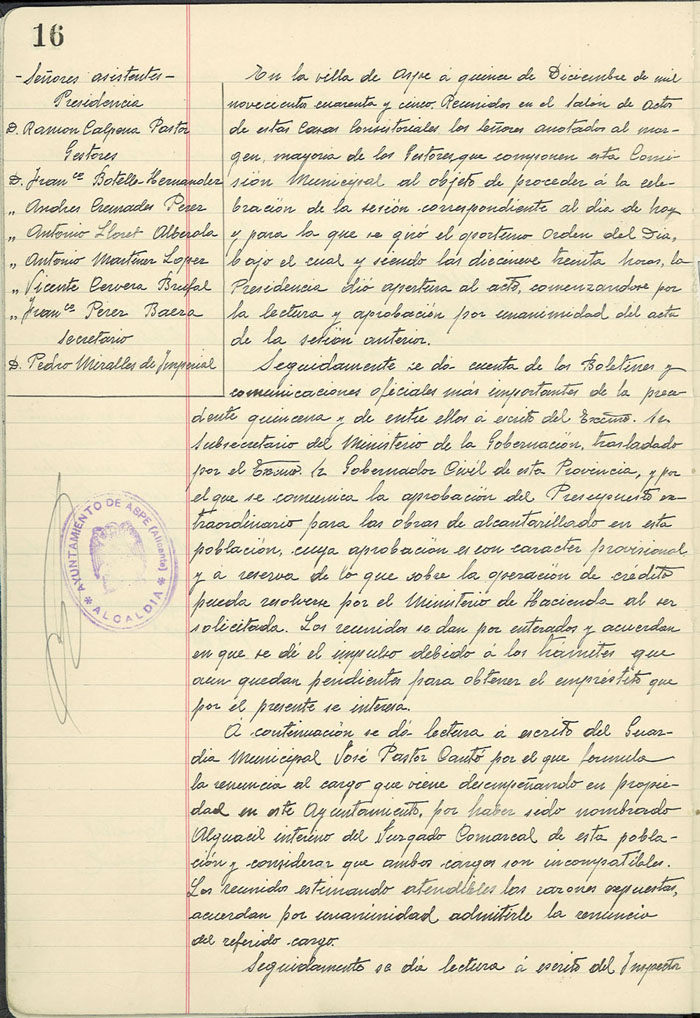 16
-Señores asistentes-
Presidencia
D. Ramon Calpena Pastor
Gestores
D. Franco Botella Hernandez
" Andres Cremades Perez
" Antonio Lloret Alberola
" Antonio Martinez Lopez
" Vicente Cervera Breifal
" Franco Perez Baeza
Secretario
D. Pedro Miralles de Imperial
AYUNTAMIENTO DE ASPE (Alicante)
* ALCALDIA *
En la villa de Aspe á quince de Diciembre de mil
novecientos cuarenta y cinco, Reunidos en el Salón de Actos
de estas Casas Consistoriales los Señores anotados al mar-
gen, mayoria de los Gestores, que componen esta Comi-
sión Municipal al objeto de proceder á la cele-
bración de la sesión correspondiente al dia de hoy
y para la que se giró el oportuno Orden del Dia,
bajo el cual y siendo las diecinueve treinta horas, la
Presidencia dió apertura al acto, comenzandose por
la lectura y aprobación por unanimidad del acta
de la sesión anterior.
Seguidamente se dá cuenta de los Boletines y
comunicaciones oficiales más importantes de la prece-
dente quincena y de entre ellos á escrito del Excmo. Sr.
Subsecretario del Ministerio de la Gobernación, trasladado
por el Excmo. Sr Gobernador Civil de esta Provincia, y por
el que se comunica la aprobación del Presupuesto ex-
traordinario para las obras de alcantarillado en esta
población, cuya aprobación es con caracter provisional
y á reserva de lo que sobre la operación de crédito
pueda resolverse por el Ministerio de Hacienda al ser
solicitada. Los reunidos se dan por enterados y acuerdan
en que se dé el impulso debido á los trámites que
aun quedan pendientes para obtener el empréstito que
por el presente se interesa.
A continuación se dá lectura á escrito del Guar-
dia Municipal José Pastor Cantó por el que formula
la renuncia al cargo que viene desempeñando en propie-
dad en este Ayuntamiento, por haber sido nombrado
Alguacil interino del Juzgado Comarcal de esta pobla-
ción y considerar que ambos cargos son incompatibles.
Los reunidos estimando atendibles las razones expuestas,
acuerdan por unanimidad admitirle la renuncia
del referido cargo.
Seguidamente se dia lectura á escrito del Inspector